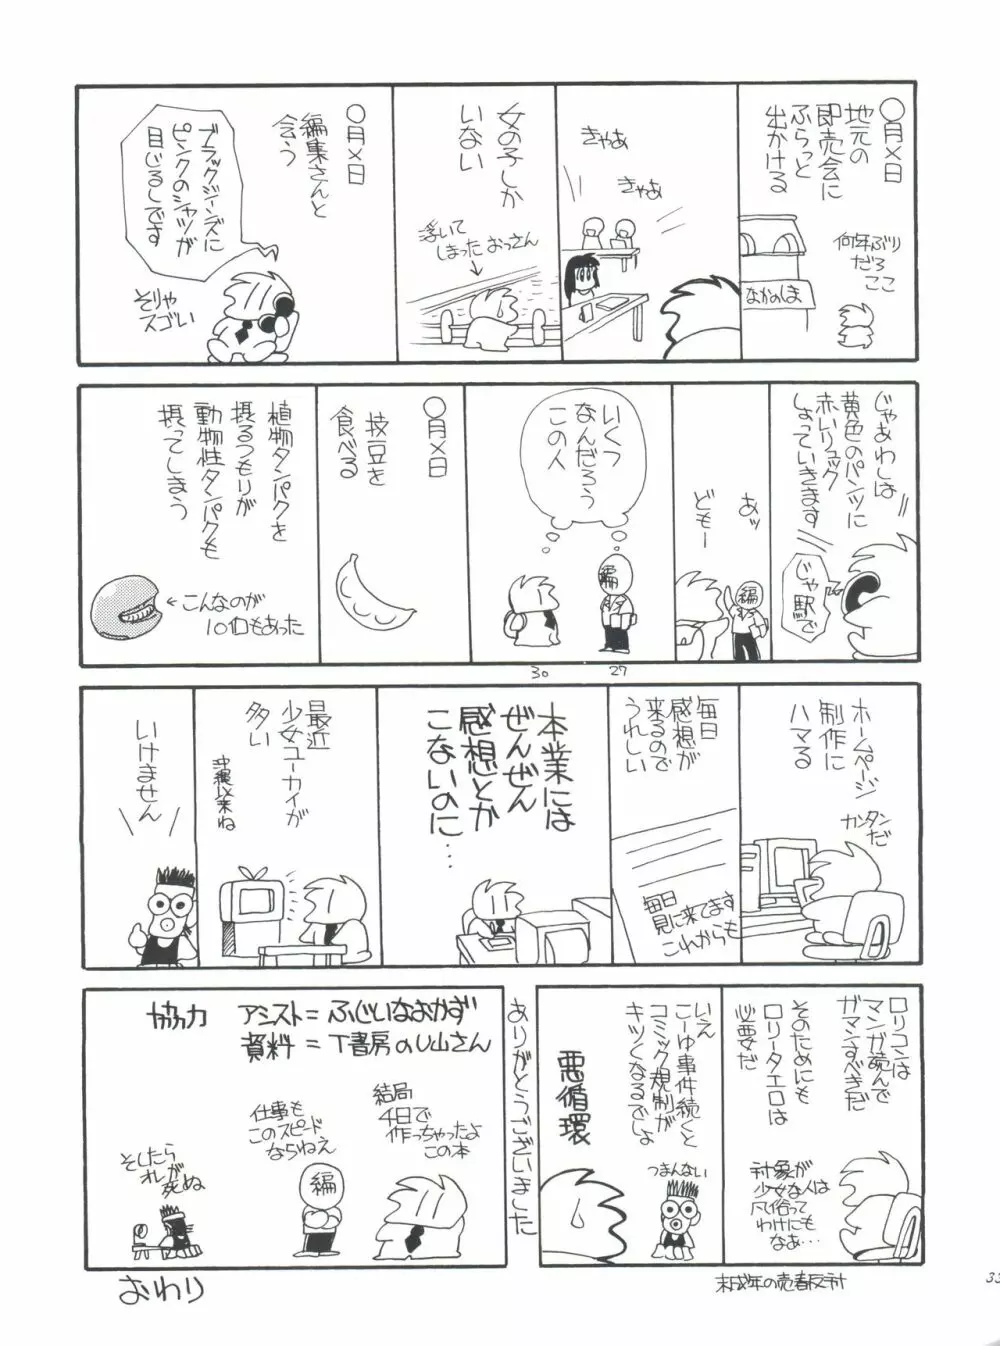 〇月×日
地元の
即売会に
ふらっと
出かける
何年ぶり
だろ
ここ
なかのしま
きゃあ
きゃあ
女の子しか
いない
浮いて
しまったおっさん
〇月×日
編集さんと
会う
ブラックジーンズに
ピンクのシャツが
目じるしです
そりゃ
スゴい
じゃあわしは
黄色のパンツに
赤いリュック
しょっていきます
じゃ駅で
あッ
どもー
編
いくつ
なんだろう
この人
編
30
27
〇月×日
枝豆を
食べる
植物タンパクを
摂るつもりが
動物性タンパクも
摂ってしまう
←こんなのが
10コもあった
ホームページ
制作に
ハマる
カンタン
だ
毎日
感想が
来るので
うれしい
毎日
見に来てます
これからも
本業には
ぜんぜん
感想とか
こないのに…
最近
少女ユーカイが
多い
沖縄以来ね
いけません
ロリコンは
マンガ読んで
ガマンすべきだ
そのためにも
ロリータエロは
必要だ
対象が
少女な人は
風俗って
わけにも
なあ…
いえ
こーゆ事件続くと
コミック規制が
キツくなるでしょ
つまんない
悪循環
未成年の売春反対
ありがとうございました
協力
アシスト＝ふじいなおかず
資料＝T書房のU山さん
結局
4日で
作っちゃったよ
この本
仕事も
このスピード
ならねえ
編
そしたら
オレが
死ぬ
おわり
33